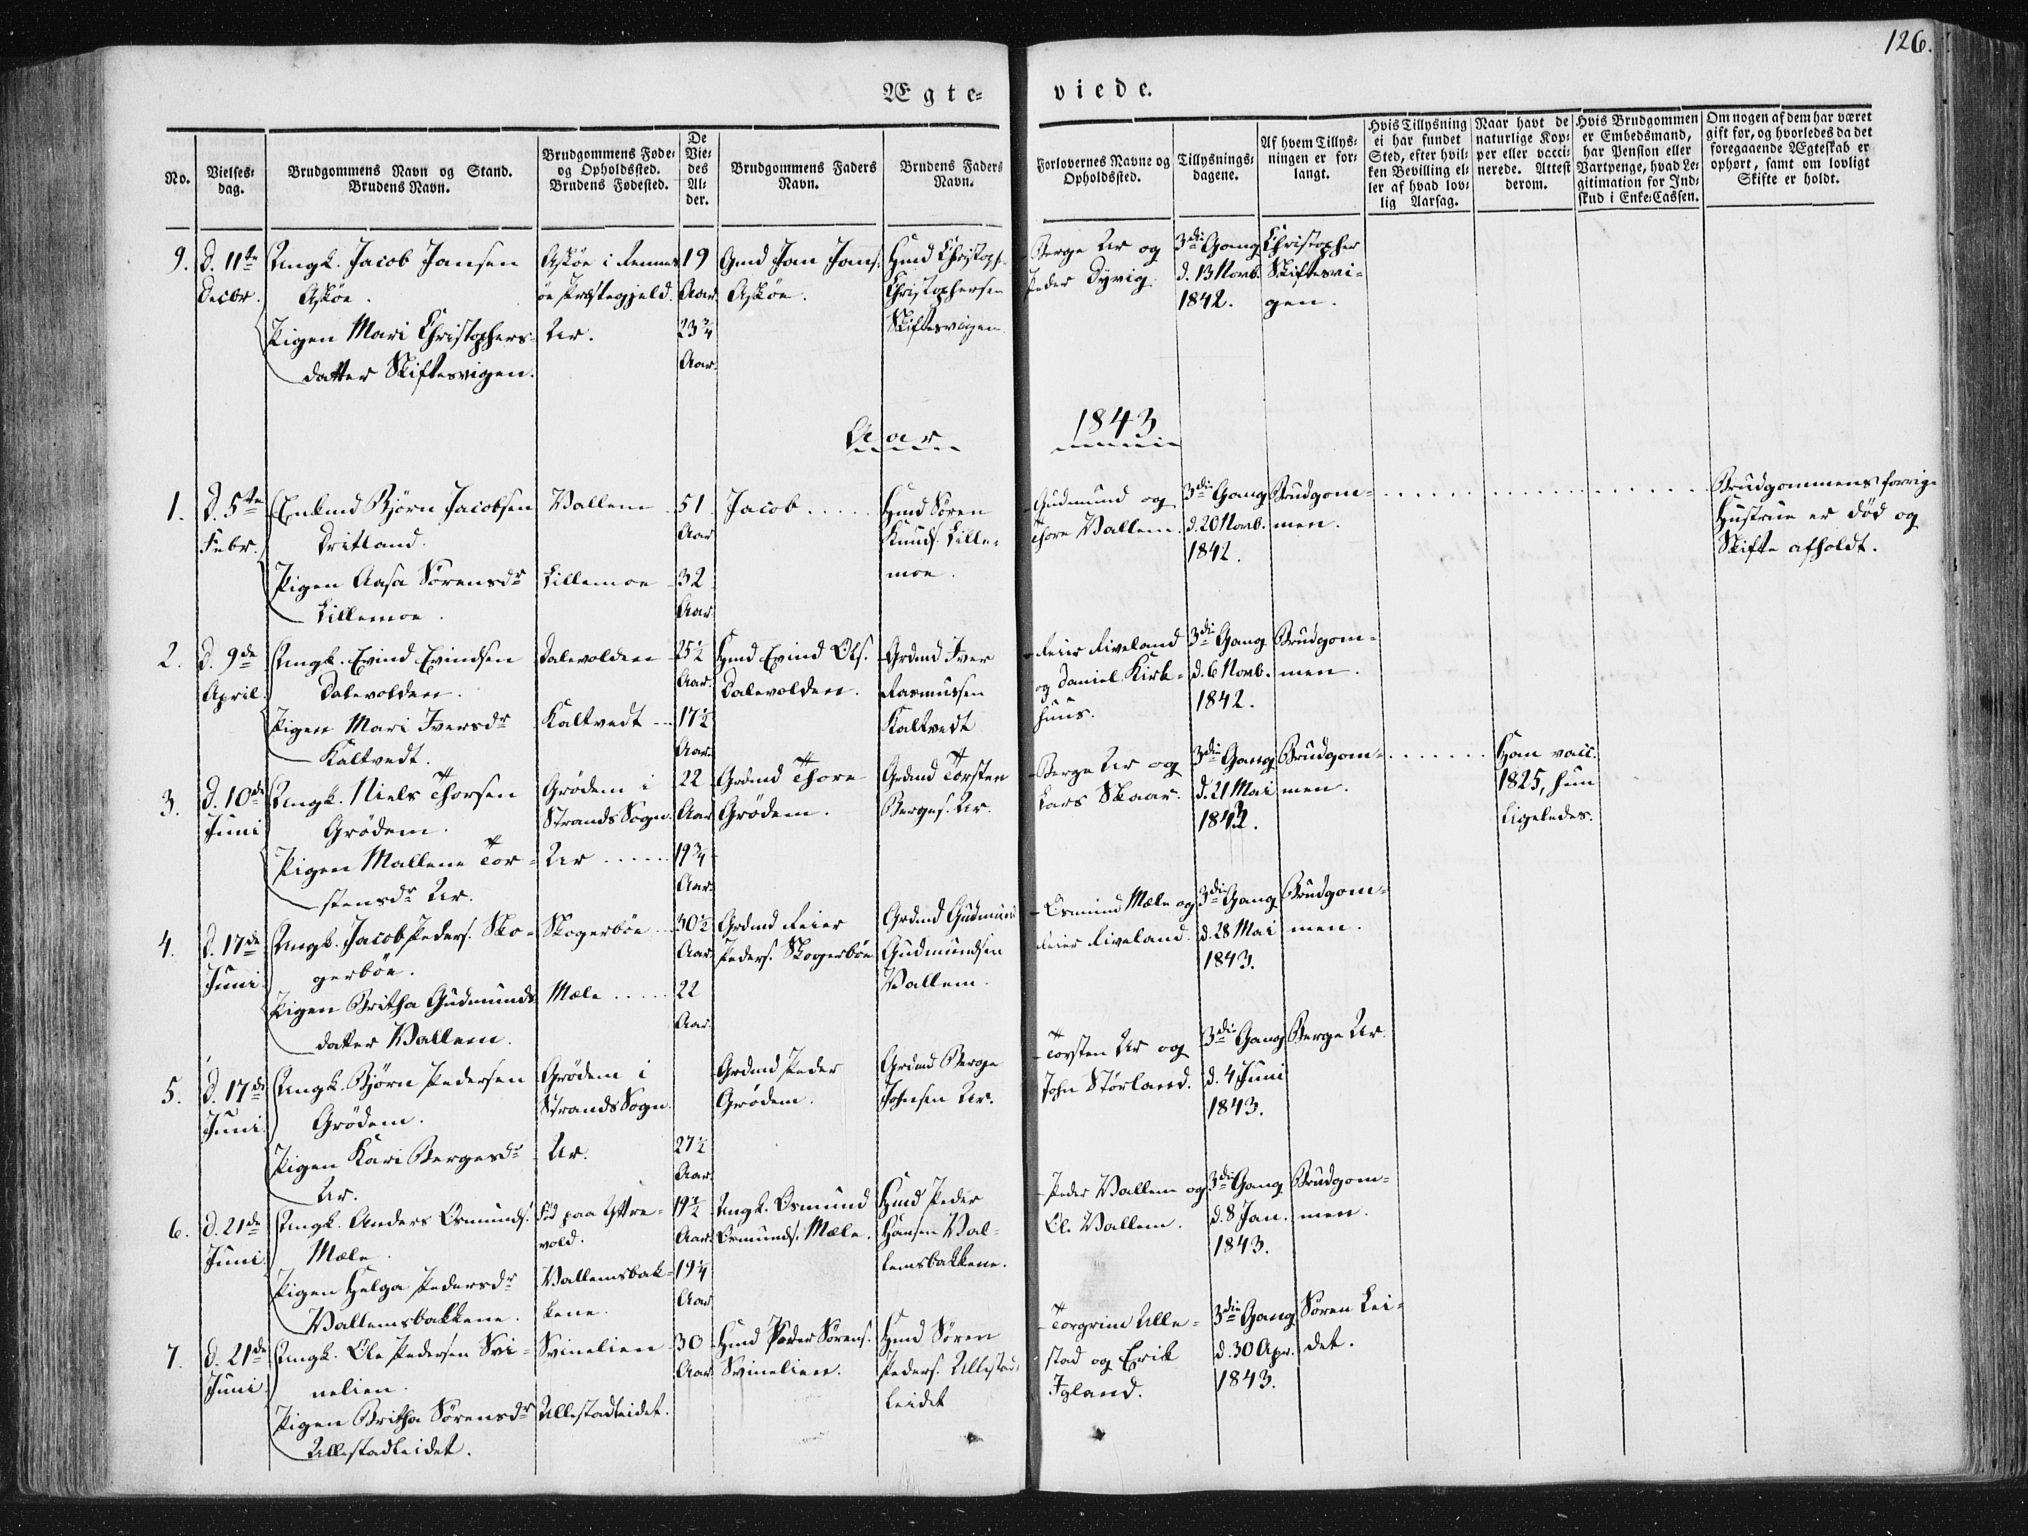 126.
Ægte- viede.
No.
Vielses-
dag.
Brudgommens Navn og Stand.
Brudens Navn.
Brudgommens Føde-
og Opholdssted.
Brudens Fødested.
De
Vie-
des
Al-
der.
Brudgommens Faders
Navn.
Brudens Faders
Navn.
Forlovernes Navne og
Opholdssted.
Tillysnings-
dagene.
Af hvem Tillys-
ningen er for-
langt.
Hvis Tillysning
ei har fundet
Sted, efter hvil-
ken Bevilling el-
ler af hvad lov-
lig Aarsag.
Naar havt de
naturlige Kop-
per eller vacci-
nerede. Attest
derom.
Hvis Brudgommen
er Embedsmand,
har Pension eller
Vartpenge, hvad Le-
gitimation for Ind-
skud i Enke-Cassen.
Om nogen af dem har været
gift før, og hvorledes da det
foregaaende Ægteskab er
ophørt, samt om lovligt
Skifte er holdt.
9.
d. 11te
Decbr.
Ungk. Jacob Jansen
Askøe.
Pigen Mari Christophers-
datter Skiftesvigen.
Askøe i Rennes-
øe Præstegjeld.
Ur.
19
Aar
23 3/4
Aar.
Gmd Jan Jans.
Askøe.
Hmd Christoph.
Christophersen
Skiftesvigen.
Berge Ur og
Peder Dyvig.
3die Gang
d. 13 Novb.
1842.
Christopher
Skiftesvi-
gen.
Aar 1843
1.
d. 5te
Febr.
Enkmd Bjørn Jacobsen
Dritland.
Pigen Aasa Sørensdr
Lillemoe.
Vallem
Lillemoe
51
Aar
32
Aar
Jacob
Hmd Søren
Knuds. Lille-
moe.
Gudmund og
Thore Vallem.
3die Gang
d. 20 Novb.
1842.
Brudgom-
men.
Brudgommens forrige
Hustrue er død og
Skifte afholdt.
2.
d. 9de
April.
Ungk. Evind Evindsen
Dalevolden.
Pigen Mari Iversdr
Kaltvedt.
Dalevolden
Kaltvedt
25 1/2
Aar.
17 1/2
Aar.
Hmd Evind Ols.
Dalevolden.
Grdmd Iver
Rasmussen
Kaltvedt
Reier Riveland
og Daniel Kirk-
huus.
3die Gang
d. 6 Novb.
1842.
Brudgom-
men.
3.
d. 10de
Juni
Ungk. Niels Thorsen
Grødem.
Pigen Mallene Tor-
stensdr Ur.
Grødem i
Strands Sogn.
Ur
22
Aar
19 3/4
Aar.
Grdmd Thore
Grødem.
Grdmd Torsten
Berges. Ur.
Berge Ur og
Lars Skaar.
3die Gang
d. 21 Mai
1843.
Brudgom-
men.
Ham vacc.
1825, hun
ligeledes.
4.
d. 17de
Juni
Ungk. Jacob Peders. Sko-
gerbøe.
Pigen Britha Gudmunds-
datter Vallem.
Skogerbøe
Mæle
30 1/2
Aar
22
Aar.
Grdmd Reier
Peders. Skogerbøe
Grdmd Gudmund
Gudmundsen
Vallem.
Osmund Mæle og
Reier Riveland.
3die Gang
d. 28 Mai
1843.
Brudgom-
men.
5.
d. 17de
Juni.
Ungk. Bjørn Pedersen
Grødem.
Pigen Kari Bergesdr
Ur.
Grødem i
Strands Sogn.
Ur.
27 1/2
Aar
Grdmd Peder
Grødem.
Grdmd Berge
Johnsen Ur.
Torsten Ur og
John Størland.
3die Gang
d. 4 Juni
1843.
Berge Ur.
6.
d. 21de
Juni.
Ungk. Anders Osmunds.
Mæle.
Pigen Helga Pedersdr
Vallemsbakkene.
Fød paa Yttre-
vold.
Vallemsbak-
kene.
19 1/2
Aar.
19 1/4
Aar
Ungk. Osmund
Osmunds. Mæle.
Hmd Peder
Hansen Val-
lemsbakkene.
Peder Vallem og
Ol. Vallem.
3die Gang
d. 8 Jan.
1843.
Brudgom-
men.
7.
d. 21de
Juni
Ungk. Ole Pedersen Svi-
nelien.
Pigen Britha Sørensdr
Ullestadleidet.
Svinelien
Ullestadleidet.
30
Aar.
Hmd Peder Sørens.
Svinelien.
Hmd Søren
Peders. Ullestad-
leidet
Torgrim Ulle-
stad og Erik
Igland.
3die Gang
d. 30 Apr.
1843.
Søren Lei-
det.